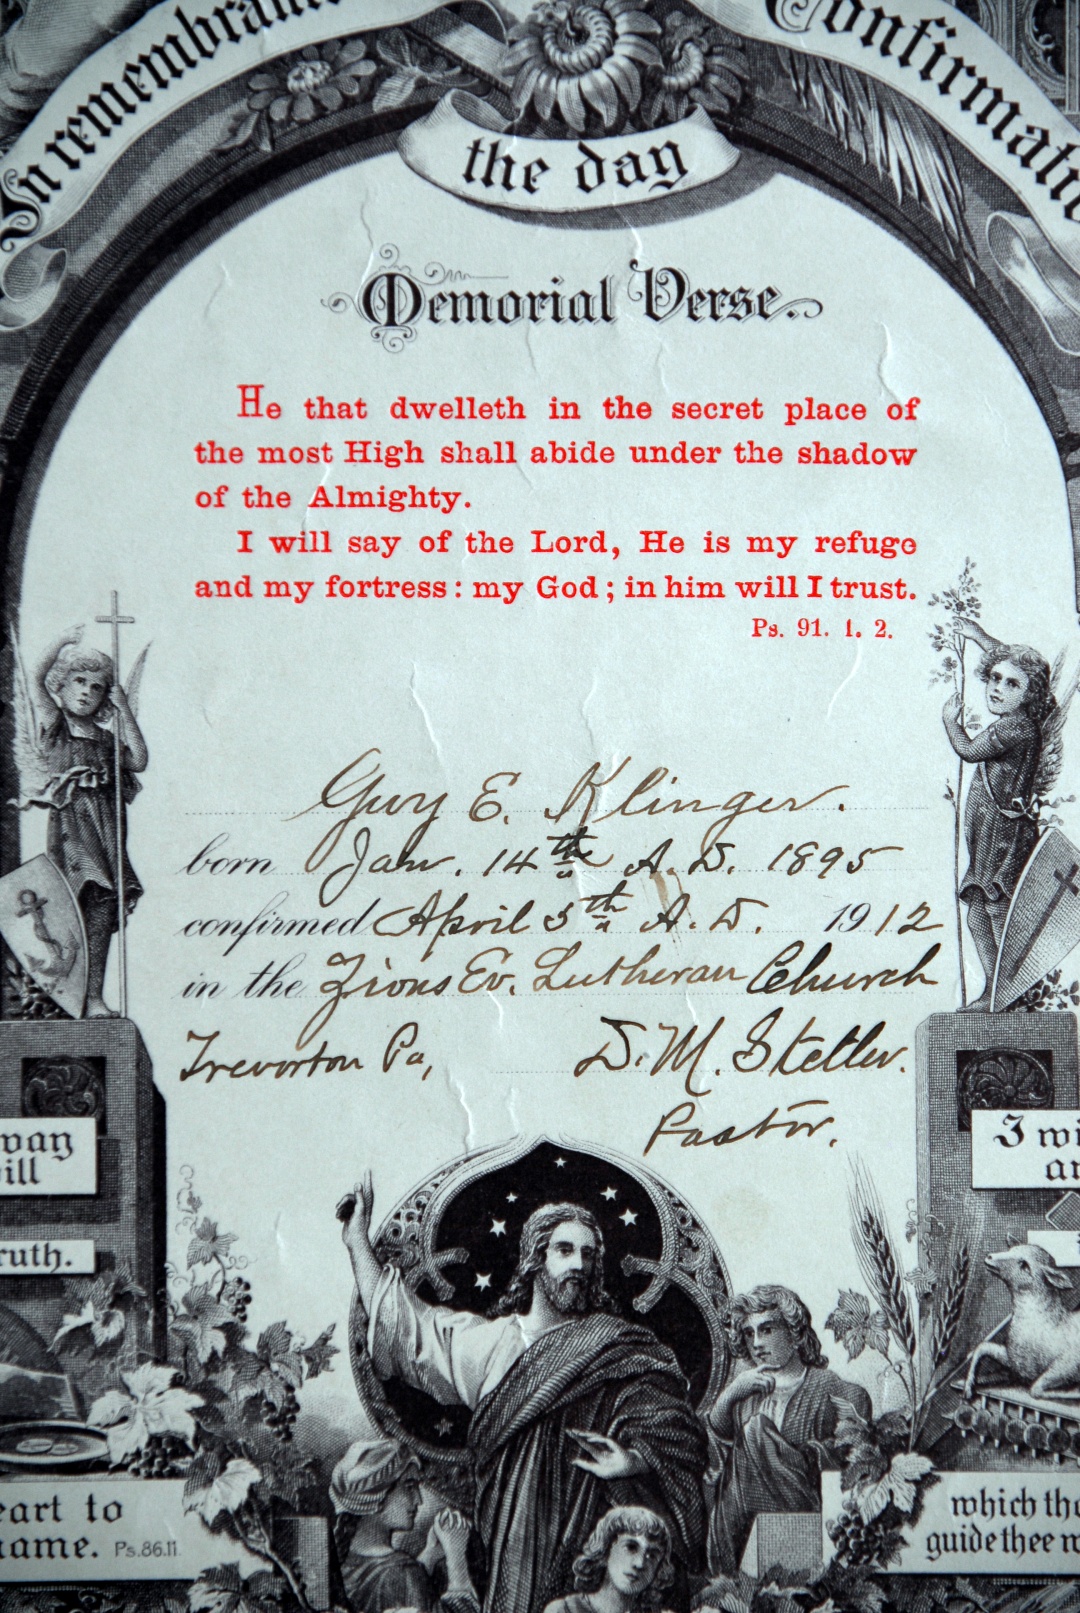 In remembrance
the day
Confirmation
Memorial Verse.
He that dwelleth in the secret place of
the most High shall abide under the shadow
of the Almighty.
I will say of the Lord, He is my refuge
and my fortress: my God; in him will I trust.
Ps. 91. 1. 2.
Guy E. Klinger.
born Jan. 14th A. D. 1895
confirmed April 5th A. D. 1912
in the Zions Ev. Lutheran Church
Trevorton Pa,
D. M. Stetler.
Pastor.
way
ill
ruth.
I wi
an
eart to
name. Ps.86.11.
which tho
guide thee